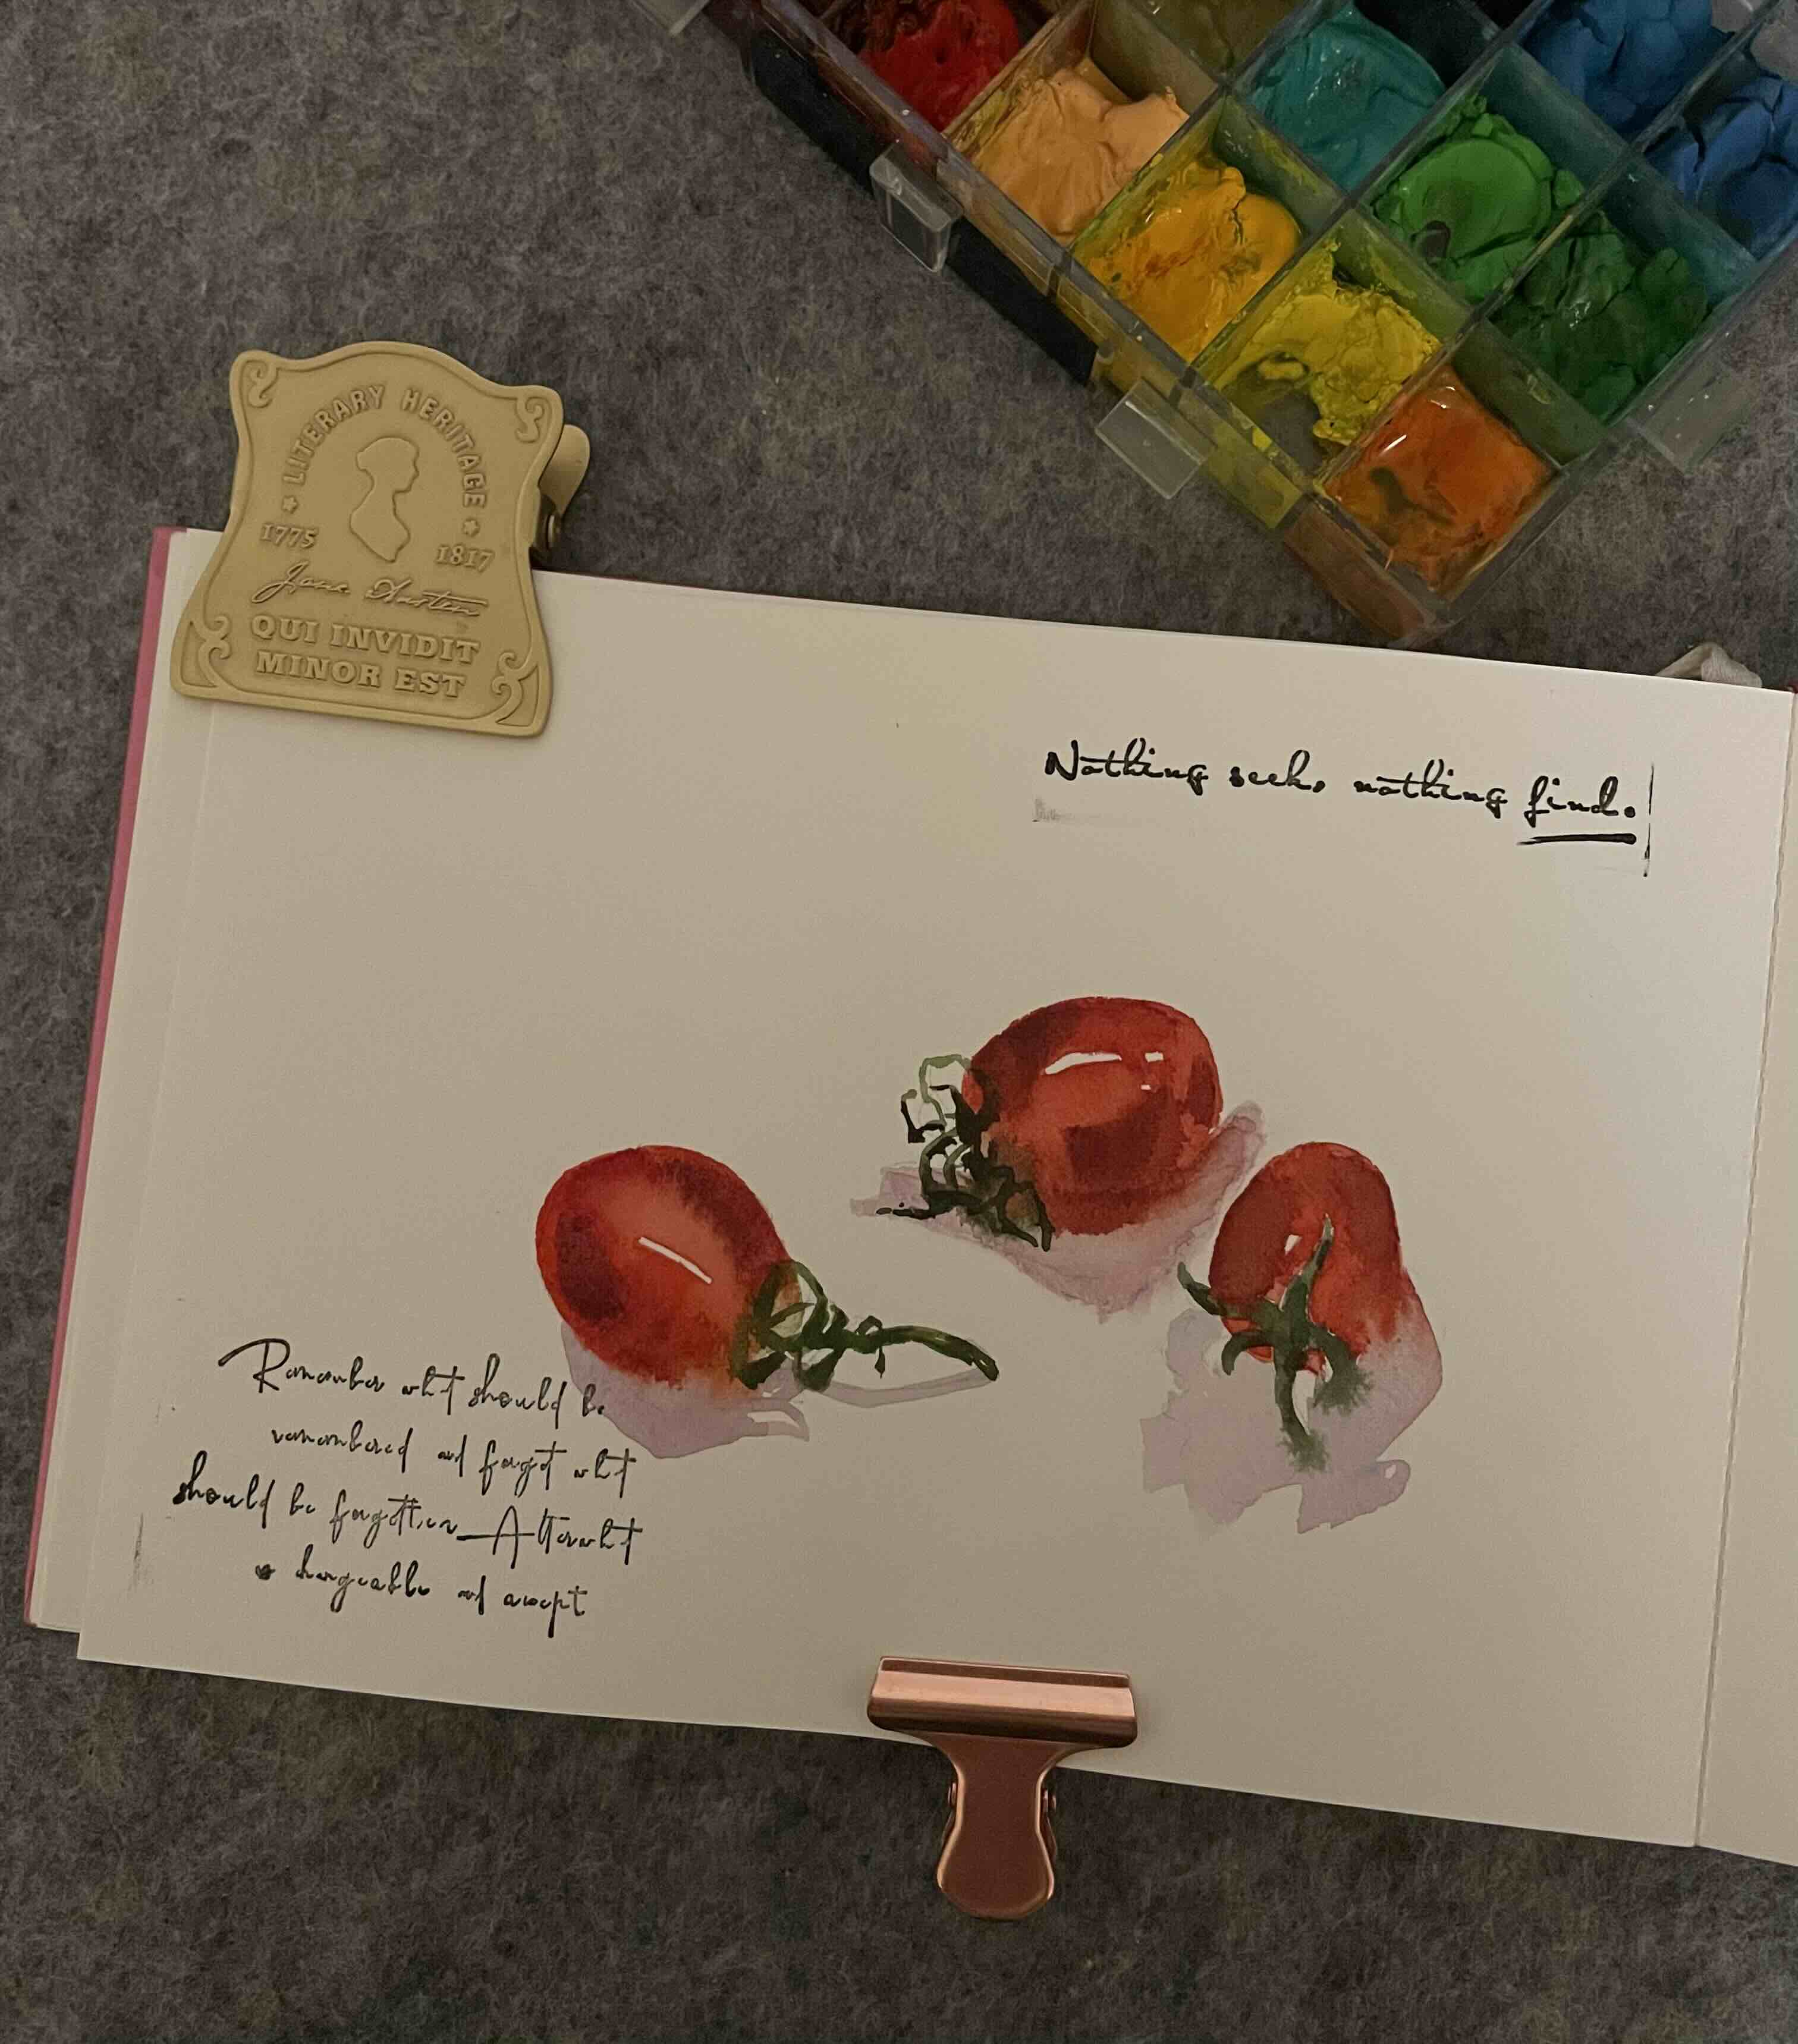 LITERARY HERITAGE
1775 1817
Jane Austen
QUI INVIDIT
MINOR EST
Nothing seek, nothing find.
Remember what should be
remembered and forget what
should be forgotten. Alter what
changeable and accept